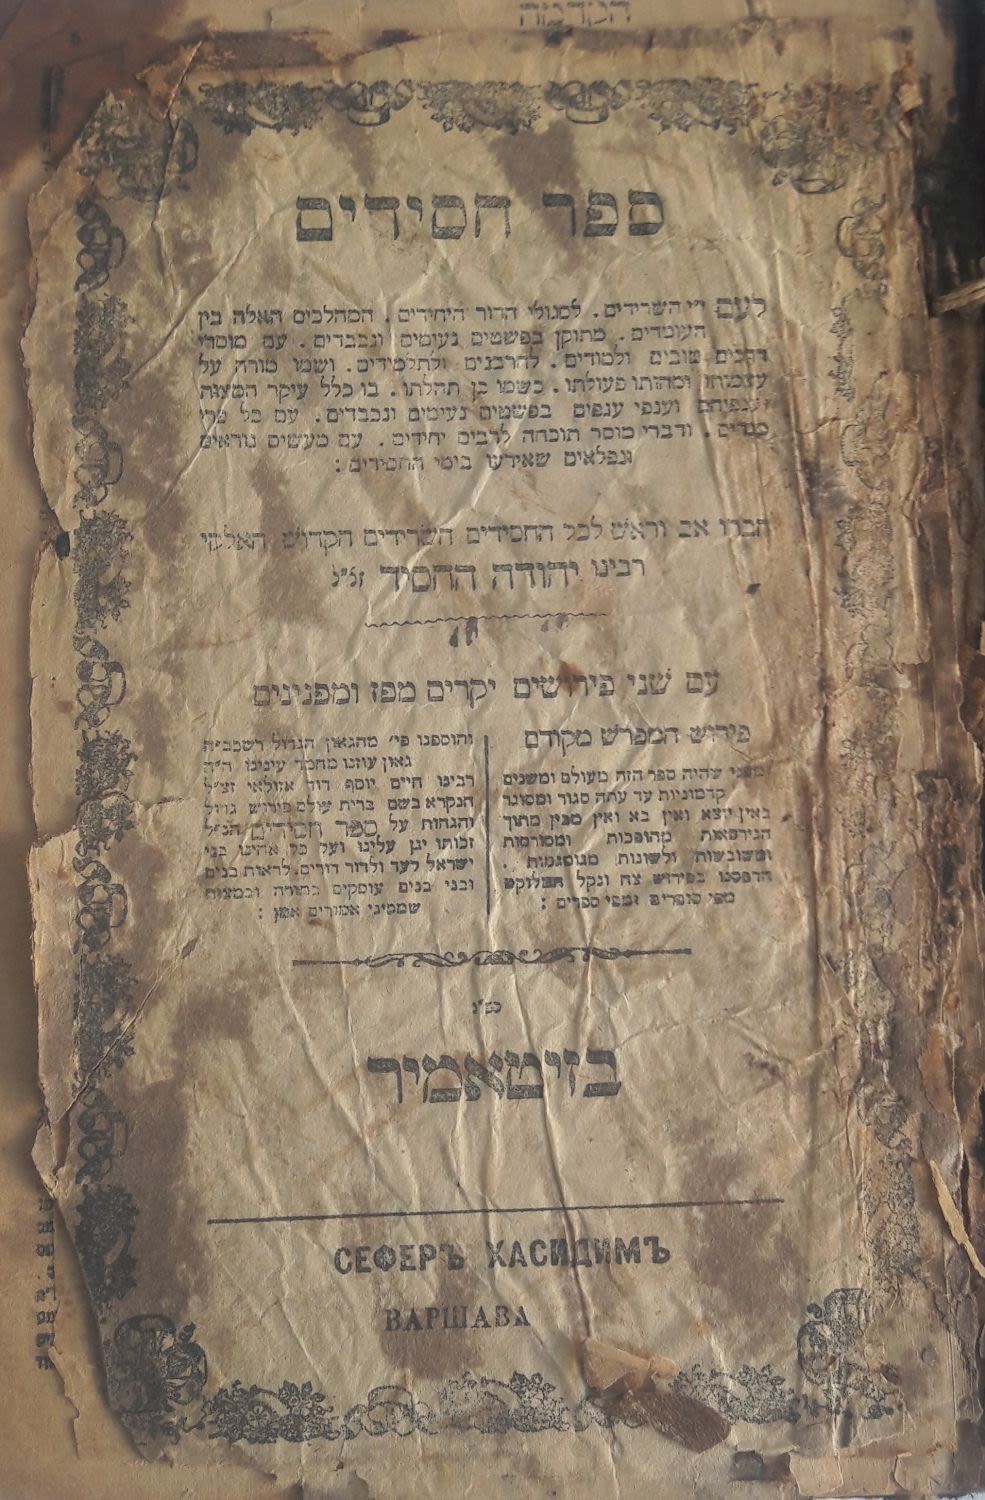 הקדמה
ספר חסידים
לעם ה׳ השרידים. לסגולי הדור היחידים. המהלכים האלה בין
העומדים. מתוקן בפשטים נעימים ונכבדים. עם מוסרי
דרכים טובים ולמודים. להרבנים ולתלמידים. ושמו מורה על
עצמותו ומהותו פעולתו. כשמו כן תהלתו. בו כלל עיקר המצות
וענפיהם וענפי ענפים בפשטים נעימים ונכבדים. עם כל פרי
מגדים. ודברי מוסר תוכחה לרבים יחידים. עם מעשים נוראים
ונפלאים שאירעו בימי החסידים:
חברו אב וראש לכל החסידים השרידים הקדוש האלקי
רבינו יהודה החסיד זצ״ל
עם שני פירושים יקרים מפז ומפנינים
פירוש המפרש מקודם
מפני שהיה ספר הזה מעולם ומשנים
קדמוניות עד עתה סגור ומסוגר
באין יוצא ואין בא ואין מבין מתוך
הגירסאות מהופכות ומסורסות
ומשובשות ולשונות מגומגמות.
הדפסנו בפירוש צח ונקל המלוקט
מפי סופרים ומפי ספרים:
והוספנו פי׳ מהגאון הגדול רשכבה״ג
גאון עוזנו מחמד עינינו ה״ה
רבינו חיים יוסף דוד אזולאי זצ״ל
הנקרא בשם ברית עולם פירוש גדול
והגהות על ספר חסידים הנ״ל
זכותו יגן עלינו ועל כל אחינו בני
ישראל לעד ולדור דורים. לראות בנים
ובני בנים עוסקים בתורה ובמצות
שממיני אמורים אמן:
בזיטאמיר
СЕФЕРЪ ХАСИДИМЪ
ВАРШАВА